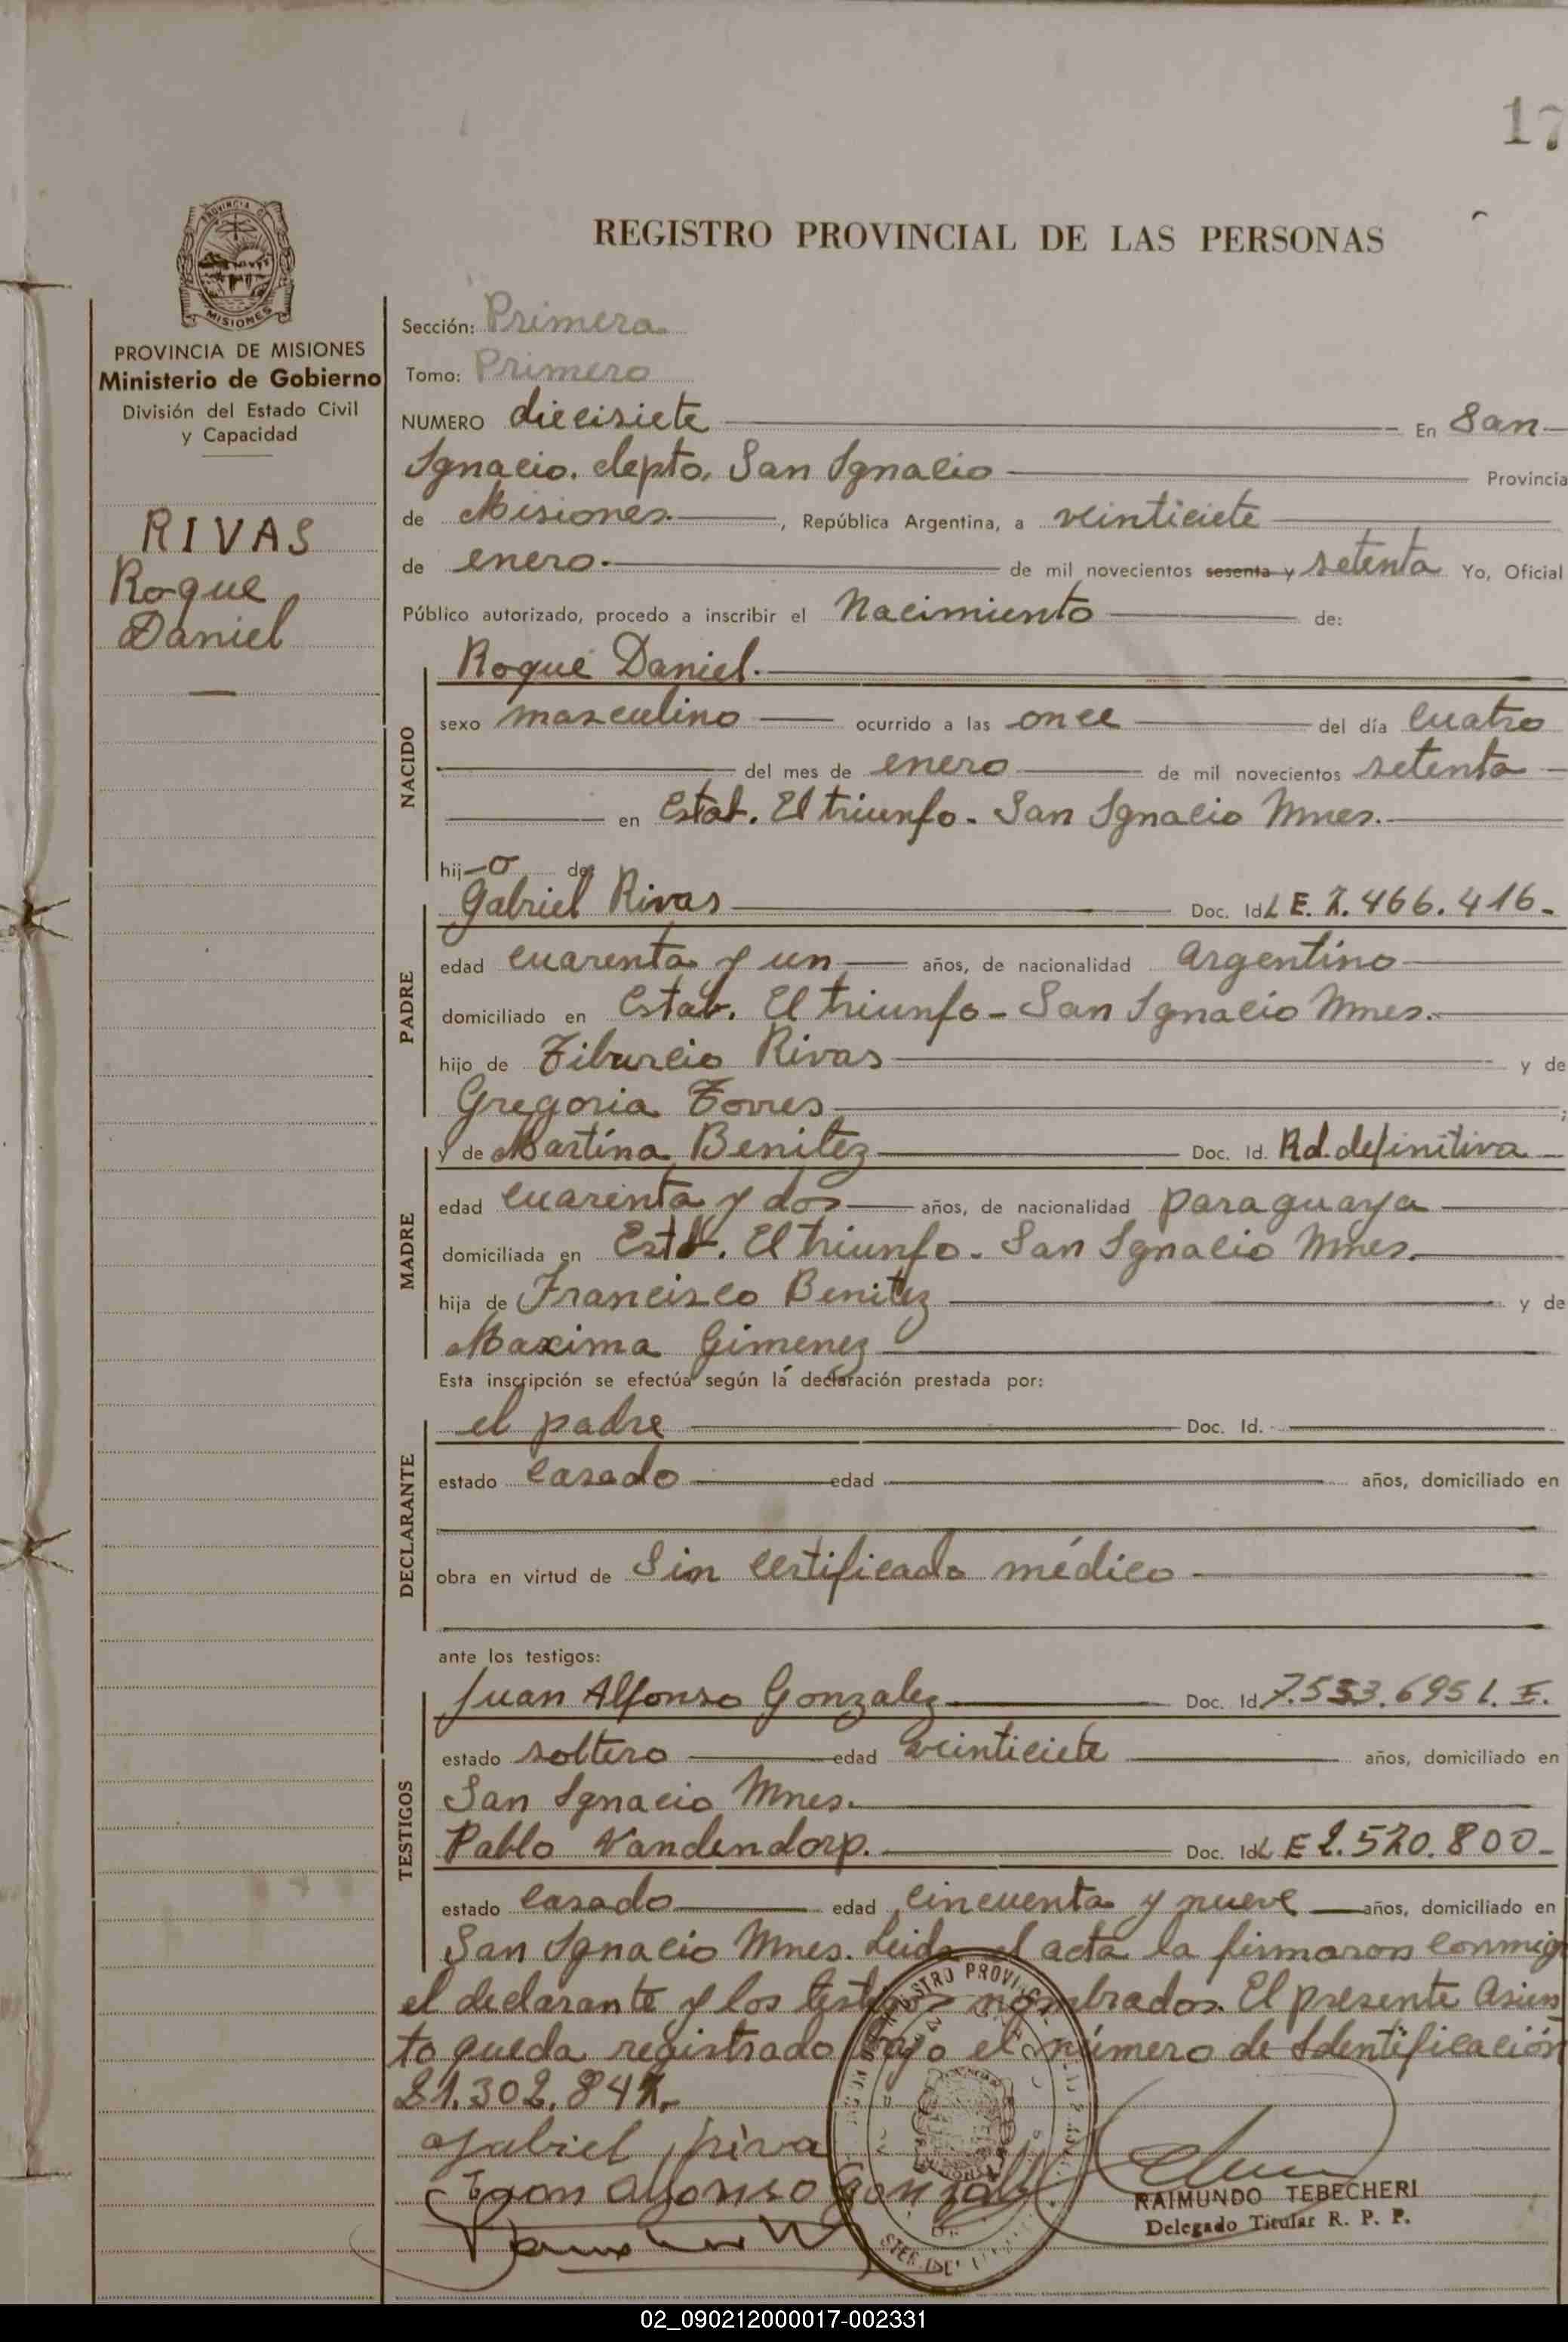 17
PROVINCIA DE
MISIONES
REGISTRO PROVINCIAL DE LAS PERSONAS
PROVINCIA DE MISIONES
Ministerio de Gobierno
División del Estado Civil
y Capacidad
RIVAS
Roque
Daniel
Sección: Primera
Tomo: Primero
NUMERO diecisiete En San
Ignacio. depto. San Ignacio Provincia
de Misiones, República Argentina, a veinticiete
de enero. de mil novecientos sesenta y setenta Yo, Oficial
Público autorizado, procedo a inscribir el Nacimiento de:
NACIDO
Roque Daniel.
sexo masculino ocurrido a las once del día cuatro
del mes de enero de mil novecientos setenta
en Estab. El triunfo - San Ignacio Mnes.
hij-o de
PADRE
Gabriel Rivas Doc. Id. L E. 7.466.416.-
edad cuarenta y un años, de nacionalidad argentino
domiciliado en Estab. El triunfo - San Ignacio Mnes.
hijo de Tiburcio Rivas y de
Gregoria Torres ;
MADRE
y de Martina Benitez Doc. Id. Rd. definitiva
edad cuarenta y dos años, de nacionalidad paraguaya
domiciliada en Estb. El triunfo - San Ignacio Mnes.
hija de Francisco Benitez y de
Maxima Gimenez
Esta inscripción se efectúa según la declaración prestada por:
DECLARANTE
el padre Doc. Id.
estado casado edad años, domiciliado en
obra en virtud de Sin certificado médico
ante los testigos:
TESTIGOS
Juan Alfonso Gonzalez Doc. Id. 7.553.695 L. E.
estado soltero edad veinticiete años, domiciliado en
San Ignacio Mnes.
Pablo Vandendorp. Doc. Id. L E 2.520.800-
estado casado edad cincuenta y nueve años, domiciliado en
San Ignacio Mnes. Leida el acta la firmaron conmigo
el declarante y los testigos nombrados. El presente asien
to queda registrado bajo el número de Identificación
21.302.847.-
Gabriel riva
Juan Alfonso Gonzalez
RAIMUNDO TEBECHERI
Delegado Titular R. P. P.
02_090212000017-002331